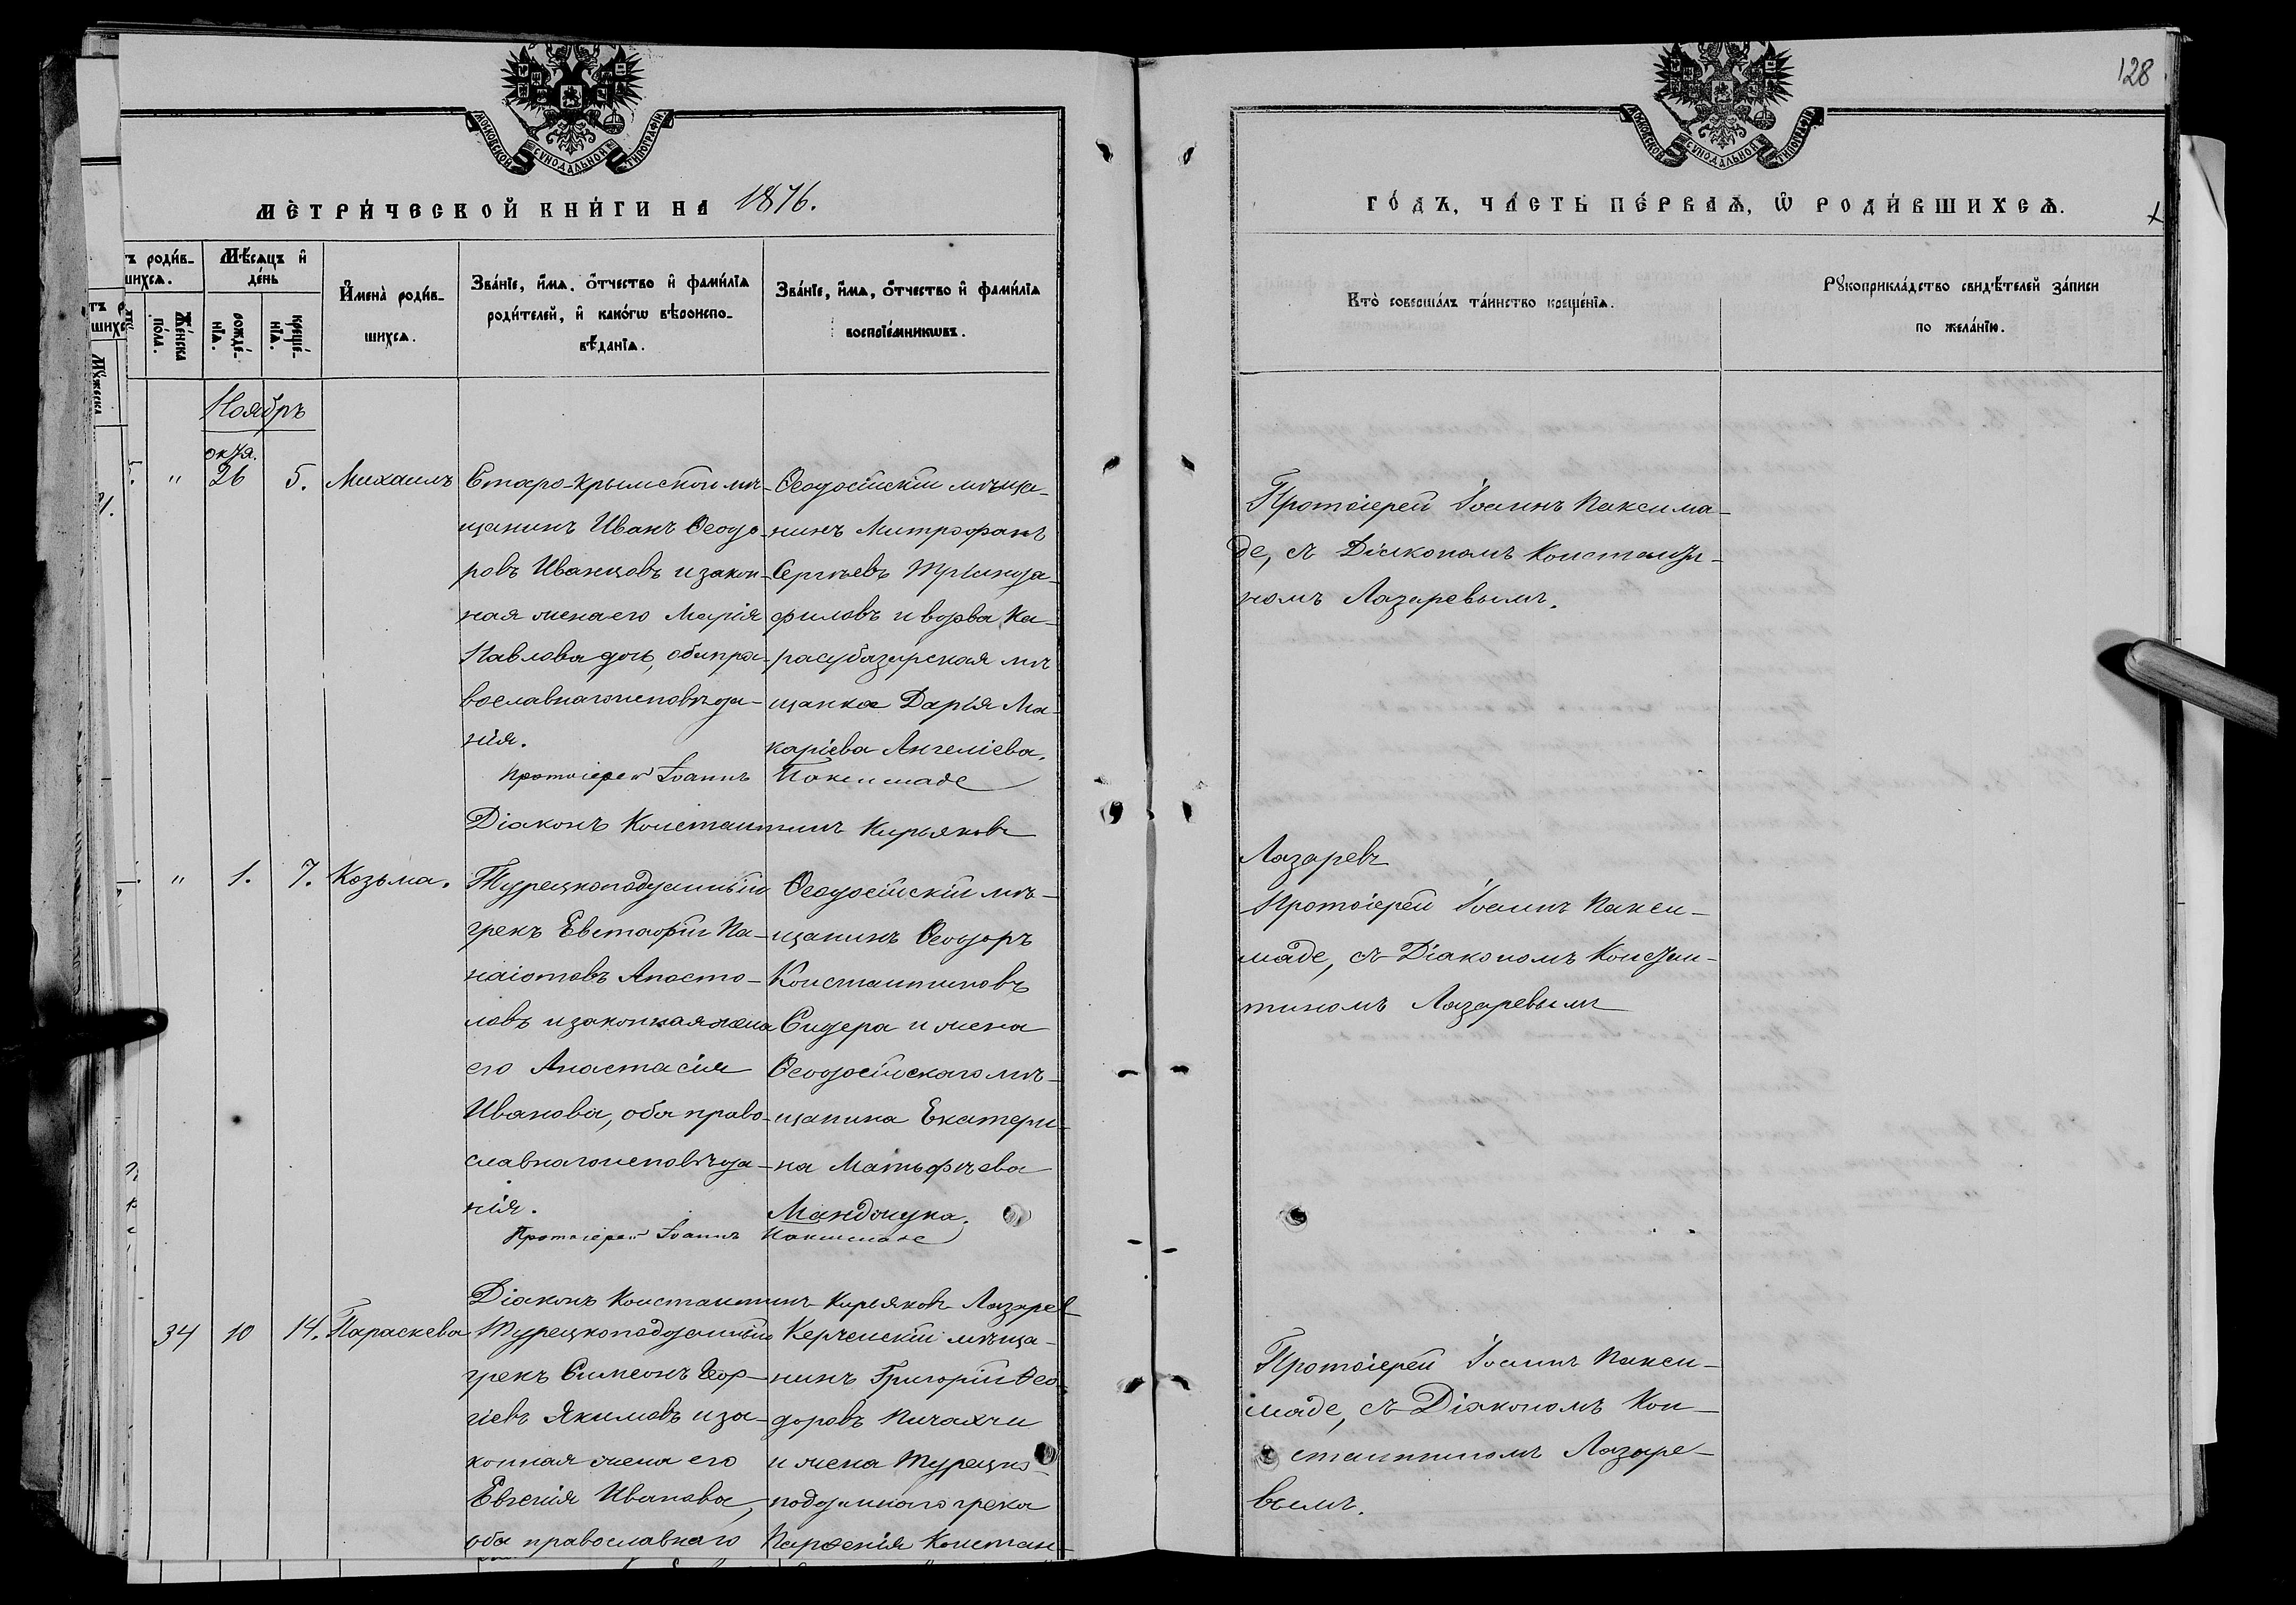 128
МОСКОВСКОЙ СѴНОДАЛЬНОЙ ТИПОГРАФІИ
МОСКОВСКОЙ СѴНОДАЛЬНОЙ ТИПОГРАФІИ
МЕТРИ́ЧЕСКОЙ КНИ́ГИ НА 1876.
ГО́ДЪ, ЧА́СТЬ ПЕ́РВАѦ, Ѡ РОДИ́ВШИХСѦ.
тъ роди́в-
шихсѧ.
Мѣ́сѧцъ и
де́нь
Же́нска по́ла.
рожде́-нїѧ.
креще́-нїѧ.
Имена̀ роди́в-
шихсѧ.
Зва́нїе, и́мѧ, о́тчество и фами́лїѧ
роди́телей, и како́гѡ вѣроиспо-
вѣ́данїѧ.
Зва́нїе, и́мѧ, о́тчество и фами́лїѧ
воспрїе́мникѡвъ.
Кто̀ соверша́лъ та́инство креще́нїѧ.
Рꙋкоприкла́дство свидѣ́телей за́писи
по жела́нїю.
Мꙋ́жеска
Ноябрь
октя.
" 26 5. Михаилъ
Старо-Крымскій мѣ-
щанинъ Иванъ Ѳеодо-
ровъ Иванцовъ и закон-
ная жена его Марія
Павлова дочь, оба пра-
вославнаго исповѣда-
нія.
Ѳеодосійскій мѣща-
нинъ Митрофанъ
Сергѣевъ Тріанда-
филовъ и вдова Ка-
расубазарская мѣ
щанка Дарія Ма-
каріева Ангеліева.
Протоіерей Іоаннъ Паксимаде
Діаконъ Константинъ Кирьяковъ
Лазаревъ
Протоіерей Іоаннъ Паксима-
де, съ Діакономъ Константи-
номъ Лазаревымъ.
" 1. 7. Козьма.
Турецкоподданный
грекъ Евстафій Па-
наіотовъ Апосто-
ловъ и законная жена
его Анастасія
Иванова, оба право-
славнаго исповѣда-
нія.
Ѳеодосійскій мѣ-
щанинъ Ѳеодоръ
Константиновъ
Сидера и жена
Ѳеодосійскаго мѣ-
щанина Екатери-
на Матьфѣева
Манджука.
Протоіерей Іоаннъ Паксимаде
Діаконъ Константинъ Кирьяковъ Лазарев
Протоіерей Іоаннъ Пакси-
маде, съ Діакономъ Констан-
тиномъ Лазаревымъ
34 10 14. Параскева
Турецкоподданный
грекъ Симеонъ Геор-
гіевъ Якимовъ и за-
конная жена его
Евгенія Иванова,
оба православнаго
Керченскій мѣща-
нинъ Григорій Ѳео-
доровъ Пичахчи
и жена Турецко-
подданнаго грека
Парѳенія Констан-
Протоіерей Іоаннъ Пакси-
маде, съ Діакономъ Кон-
стантиномъ Лазаре-
вымъ.